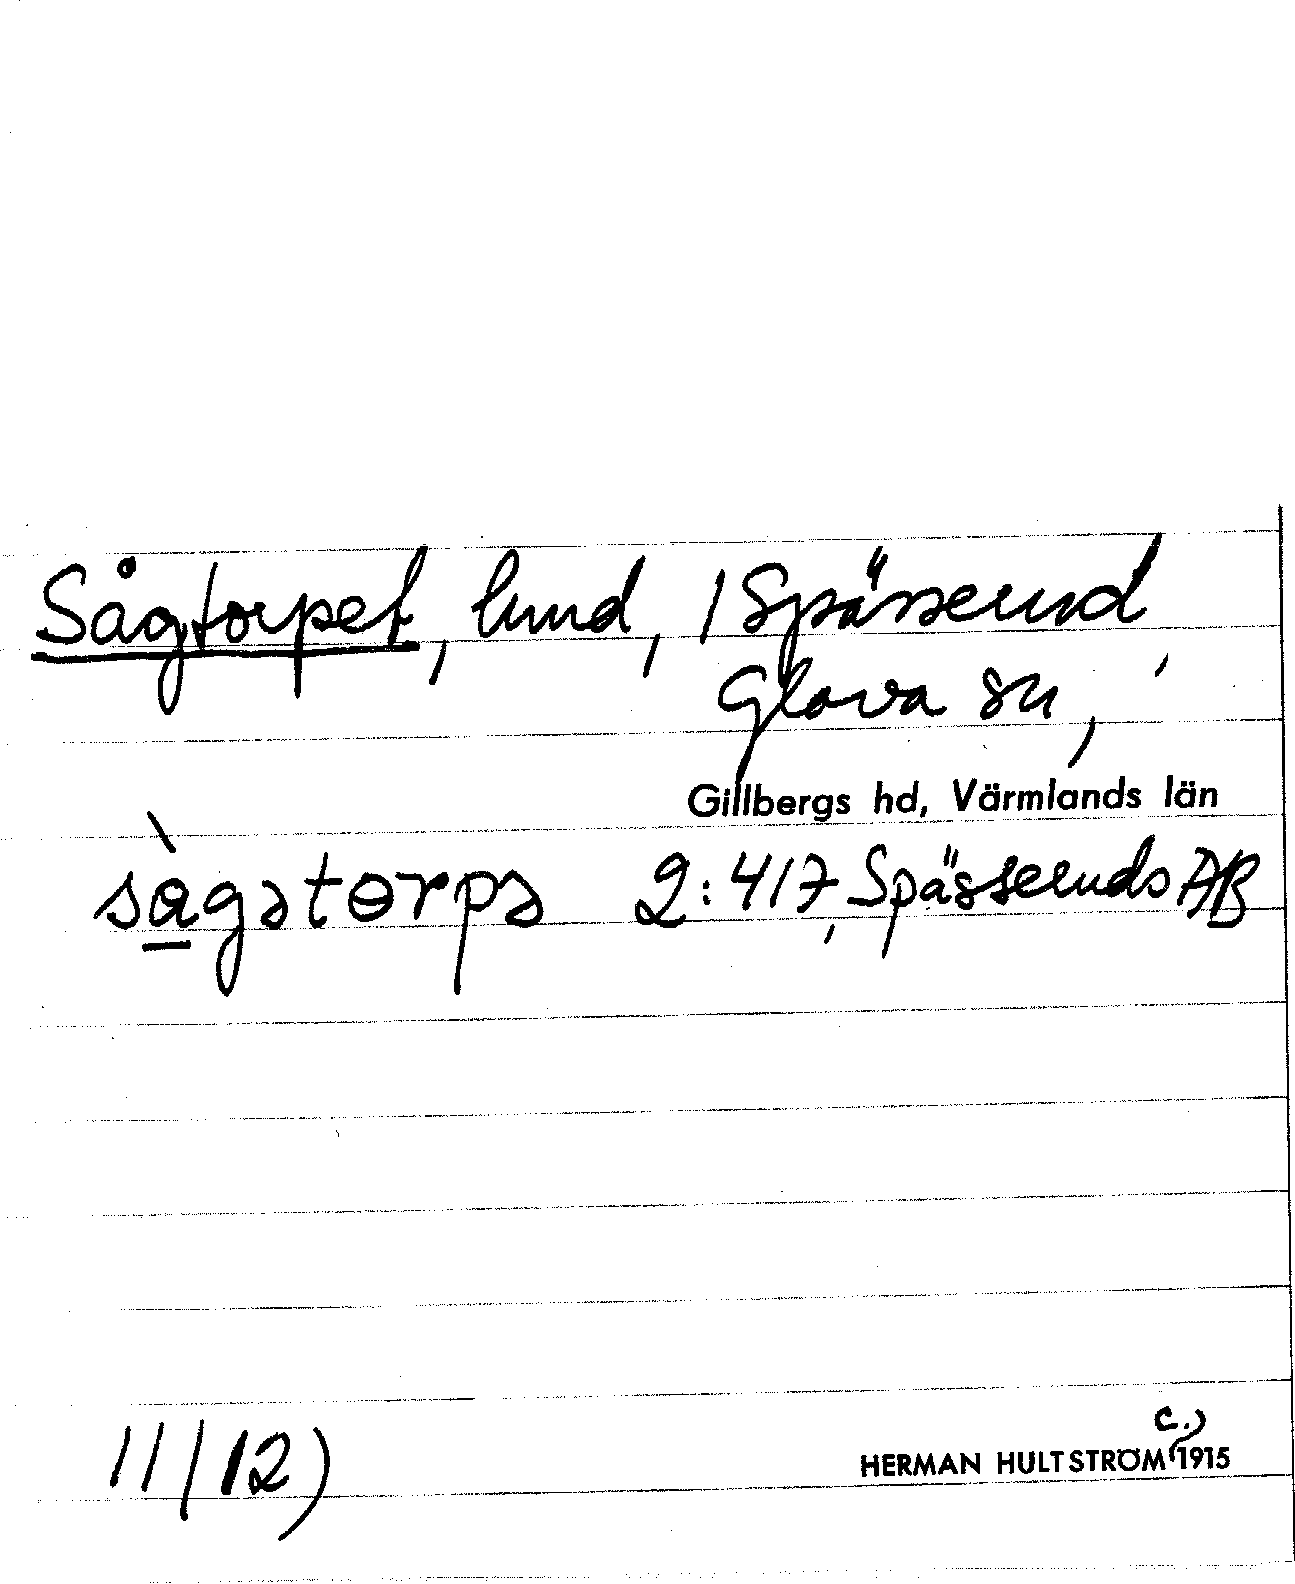 Sågtorpet, lund, 1 Spässerud,
Glava sn,
Gillbergs hd, Värmlands län
sàgətɵrpə 2:417, Spässeruds AB
11/12)
c.,
HERMAN HULTSTRÖM 1915